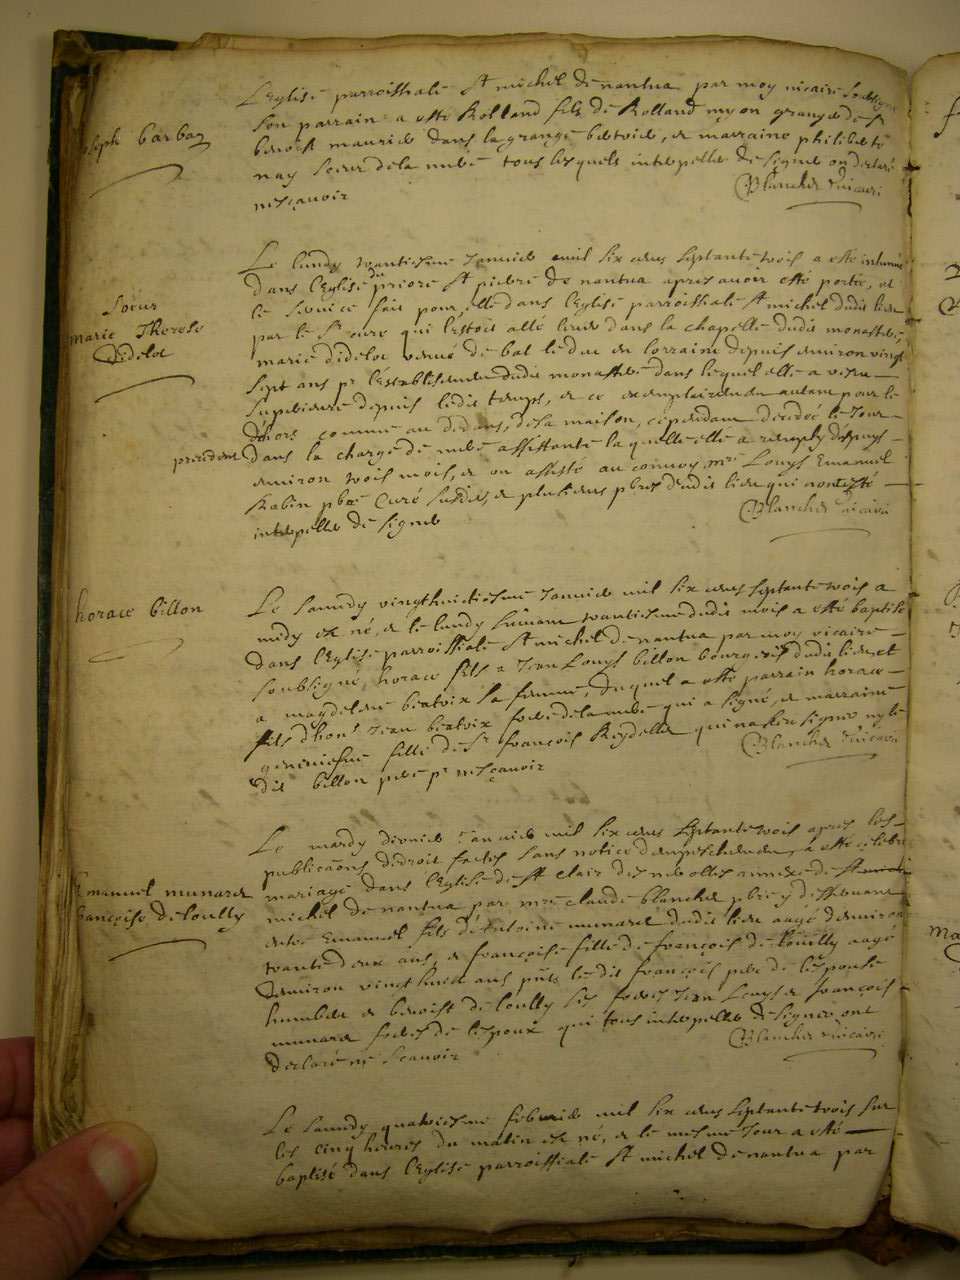 L'eglise parroissialle St michel de nantua par moy vicaire soubsigné
joseph barbaz
son parrain a esté Rolland fils de Rolland
benoist maurier dans la grange et marraine philiberte
nay soeur de la mere tous lesquels interpellés de signer ont declaré
nescavoir
Blanchet vicaire
Le lundy trantiesme Janvier mil six cens septante trois a esté inhumé
dans l'eglise du prioré St pierre de nantua apres avoir esté portée, et
le service fait pour elle dans l'eglise parroissialle St michel dudit lieu
Soeur
marie Therese
Didelot
par le Sr curé qui l'estoit allé lever dans la chapelle dudit monastere,
marie didelot venue de bar le duc en lorraine depuis environ vingt
sept ans pr l'establissement dudit monastere dans lequel elle a vescu
superieure depuis ledit temps, et ce exemplairement autant pour le
dehors comme au dedans, de sa maison, cependant decedée le jour
precedent dans la charge de mere assistante laquelle elle a remply depuys
environ trois mois, et ont assisté au convoy, mre Louys Emanuel
Rabin pbre Curé susdit, et plusieurs pbres dudit lieu qui n'ont esté
interpellés de signer
Blanchet vicaire
horace billon
Le samedy vingthuictiesme Janvier mil six cens septante trois a
midy est né, et le lundy suivant trantiesme dudit mois a esté baptisé
dans l'eglise parroissialle St michel de nantua par moy vicaire
soubsigné, horace fils a Jean Louys billon bourgeois dudit lieu et
a magdeleine beatrix sa femme, duquel a esté parrain horace
fils d'hon. Jean beatrix frere de la mere qui a signé, et marraine
geneviefve fille de Sr françois Reydellet qui n'a sceu signer ny le
dit billon pere pr nesçavoir
Blanchet vicaire
Le mardy dernier Janvier mil six cens septante trois apres les
publicaons de droit faites sans notice d'empeschement, a esté celebré
Emanuel munaret
françoise de loully
mariage dans l'eglise de St clair des neorolles annexe de St
michel de nantua par mre claude blanchet pbre y desservant
entre Emanuel fils d'Antoine munaret dudit lieu aagé d'environ
trante deux ans, et françoise fille de françois de loully aagé
d'environ vingthuit ans pnts ledit françois pere de l'espouse
humbert et benoist de loully ses freres Jean Louys et françois
munaret freres de l'espoux qui tous interpellés de signer ont
declaré ne scavoir
Blanchet vicaire
Le samedy quatriesme febvrier mil six cens septante trois sur
les cinq heures du matin est né, et le mesme jour a esté
baptisé dans l'eglise parroissialle St michel de nantua par